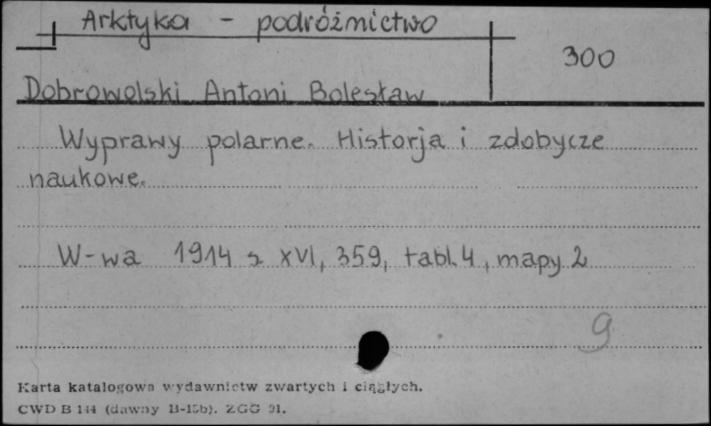 Arktyka - podróżnictwo
300
Dobrowolski Antoni Bolesław
Wyprawy polarne. Historja i zdobycze
naukowe.
W-wa 1914 s. XVI, 359, tabl. 4, mapy 2
9
Karta katalogowa wydawnictw zwartych i ciągłych.
CWD B 144 (dawny B-15b). ZGG 91.